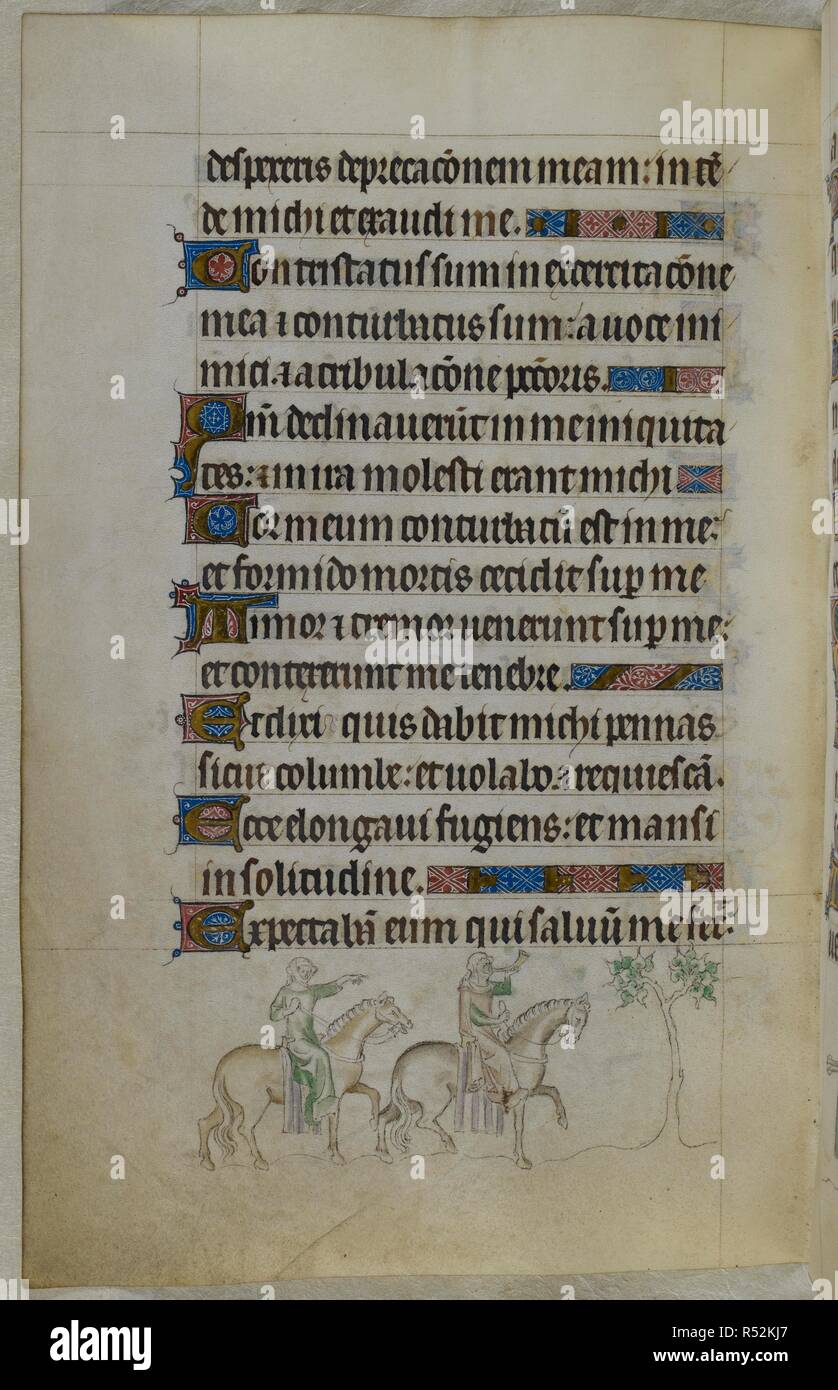 despexeris deprecacõnem meam: in tẽ
de michi et exaudi me.
Contristatus sum in excercitacõne
mea ⁊ conturbatus sum: a uoce ini
mici. ⁊ a tribulacõne pctõris.
Qm̃ declinauerũt in me iniquita
tes: ⁊ in ira molesti erant michi
Cor meum conturbatũ est in me:
et formido mortis cecidit sup me
Timor ⁊ tremor uenerunt sup me:
et contexerunt me tenebre.
Et dixi quis dabit michi pennas
sicut columbe: et uolabo. ⁊ requiescã.
Ecce elongaui fugiens: et mansi
in solitudine.
Expectabã eum qui saluũ me fec̃:
alamy
Image ID: R52KJ7
www.alamy.com